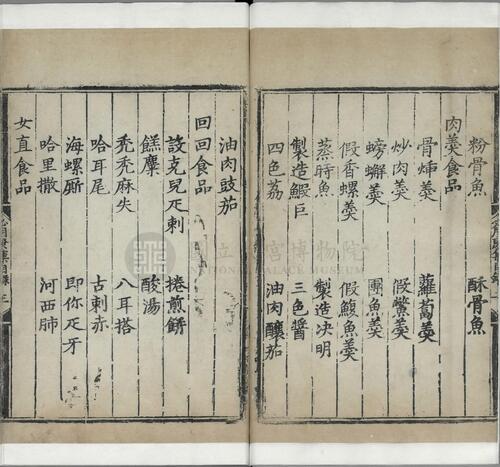 粉骨魚 酥骨魚
肉羹食品
骨㨪羹 蘿蔔羹
炒肉羹 假鱉羹
螃蠏羹 團魚羹
假香螺羹 假鰒魚羹
蒸時魚 製造決明
製造鰕巨 三色醬
四色荔 油肉釀茄
油肉豉茄
回回食品
設克兒疋剌 捲煎餅
餻糜 酸湯
禿禿麻失 八耳搭
哈耳尾 古剌赤
海螺厮 即你疋牙
哈里撒 河西肺
女直食品
國立故宮博物院
NATIONAL PALACE MUSEUM